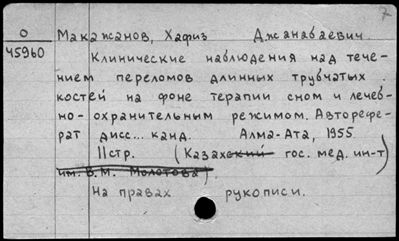 7
О
45960
Макажанов, Хафиз Джанабаевич.
Клинические наблюдения над тече-
нием переломов длинных трубчатых
костей на фоне терапии сном и лечеб-
но-охранительным режимом. Авторефе-
рат дисс... канд. Алма-Ата, 1955
11стр. (Казахский гос. мед. ин-т
им. В.М. Молотова).
На правах рукописи.